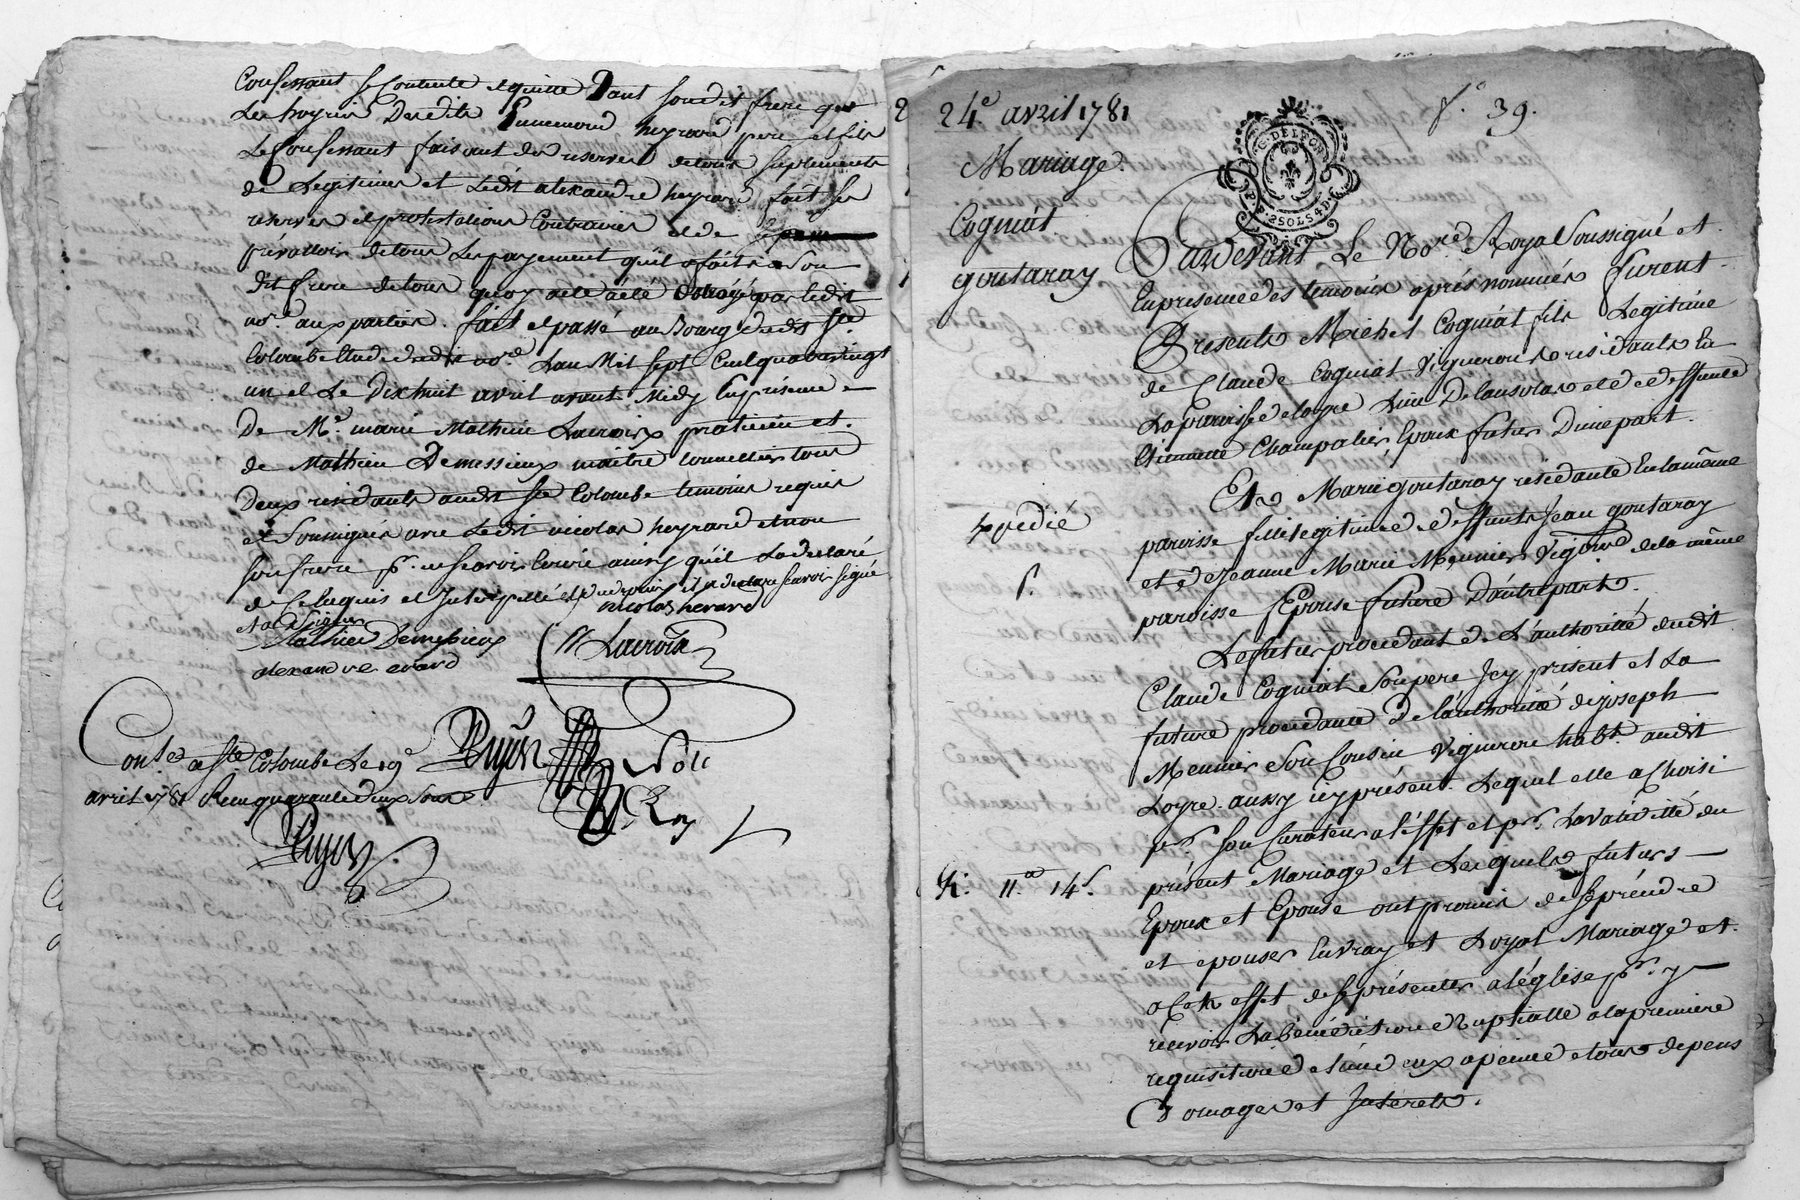 Confessant se Contente et quitte tant sondit frere que
Les hoyrs Desdits Ennemond heyrard pere et fils
Le Confessant faisant des reserves de tous suplements
de Legitimes et Ledit alexandre heyrard fait ses
reserves et protestations Contraires et de se
prévalloir de tous Les payements qu'il a faits a Son
dit frere de tous quoy acte a été Octroyé par ledit
no.re aux parties. fait et passé au Bourg dudit Ste
Colombe Etude dudit no.re L'an Mil sept Cent quatrevingt
un et Le Dixhuit avril avant Midy En presence
De M.e marie Mathieu Lacroix praticien et
de Mathieu Demessieux maître tonnellier tous
Deux residants audit Ste Colombe temoins requis
et Soussignés avec Ledit nicolas heyrard et non
son frere p.r ne sçavoir Ecrire ainsy qu'il La declaré
de Ce Enquis et Interpellé et depuis il a declaré scavoir signé
et a signé nicolas herard
Mathieu Demessieux Lacroix
alexandre erard
Con.lé a Ste Colombe Le 19e
avril 1781 Reçu quarante deux Sous
24e avril 1781 f.o 39.
Mariage.
Cogniat
goutaray
G. DE LYON
2 SOLS 4 D
Pardevant Le No.re Royal Soussigné et
En presence des temoins après nommés furent
Présents Michel Cogniat fils Legitime
de Claude Cogniat Vigneron residants En
La paroisse de loyre Lieu De lansolas et de deffunte
Etiennette Champalier, Epoux futur D'une part.
Et Marie goutaray residante En la même
paroisse fille legitime de deffunts Jean goutaray
et de Jeanne Marie Meunier Vigneron de la même
paroisse Epouse future D'autre part.
Expedié
Le futur procedant de L'authorité dudit
Claude Cogniat Son pere Icy présent et La
future procedante De l'authorité de joseph
Meunier Son Cousin Vigneron hab.t audit
Loyre aussy icy présent. Lequel elle a Choisi
p.r son Curateur a l'effet et p.r La validitté du
présent Mariage et Lesquels futurs
Epoux et Epouse ont promis de se prendre
et epouser En vray et Loyal Mariage et
a Cet effet de se présenter a l'église p.r y
recevoir La bénédiction Nuptialle a la premiere
requisition de l'un d'eux a peine de tous depens
Domages et Intérets.
11.tt 14.s